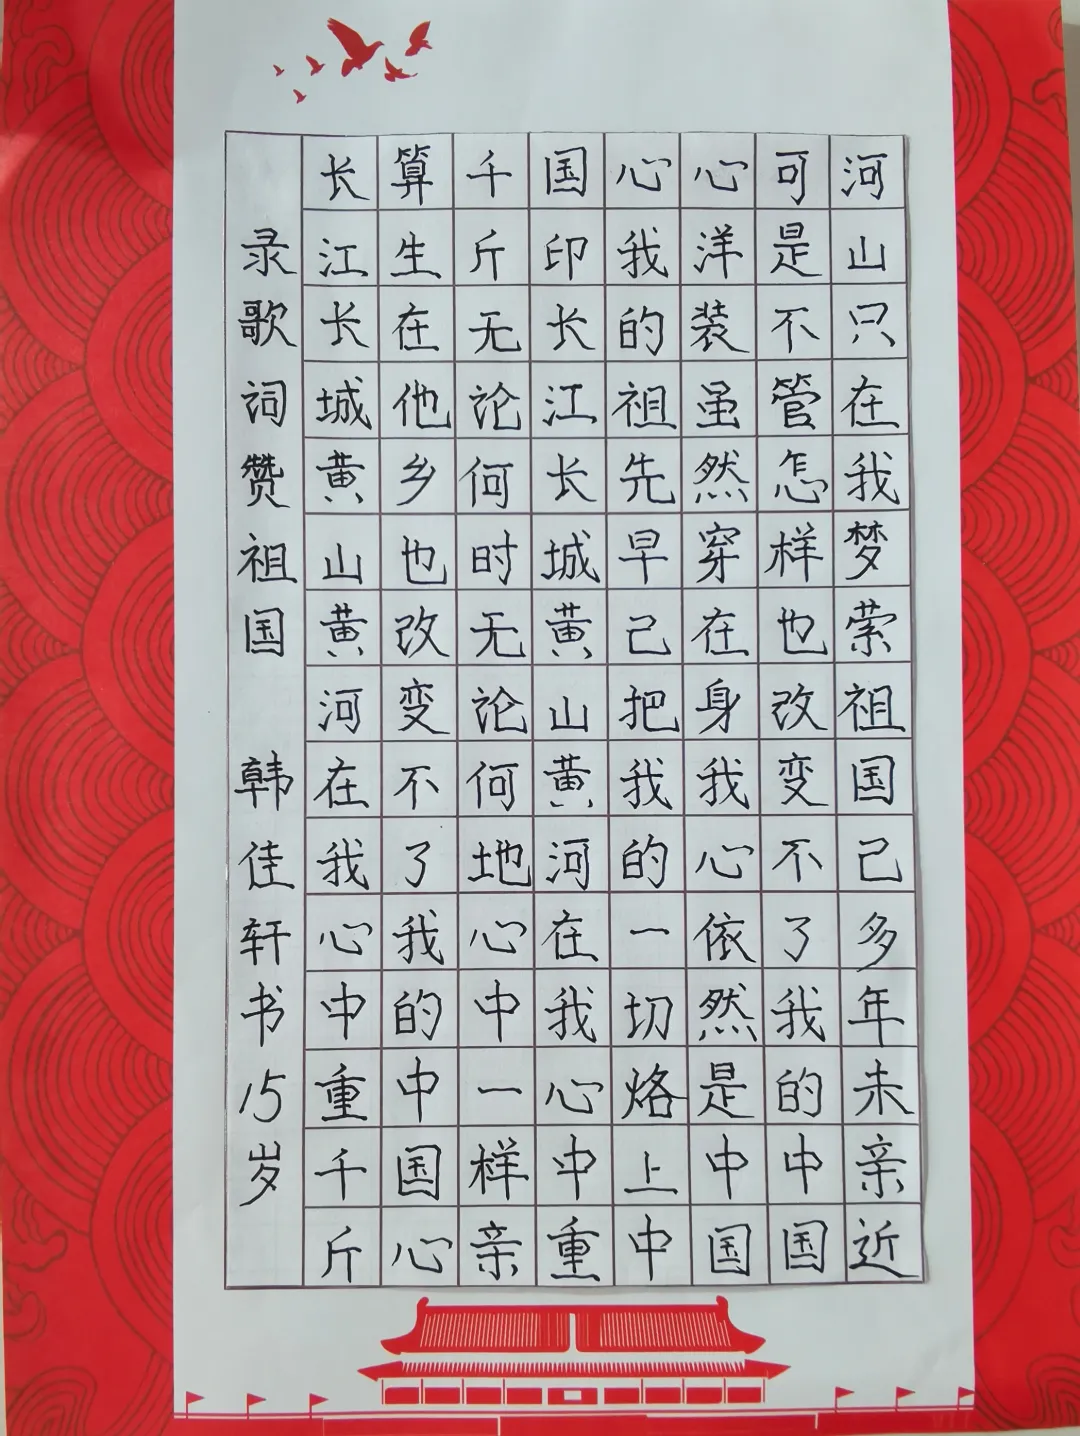 河山只在我梦萦祖国已多年未亲近
可是不管怎样也改变不了我的中国
心洋装虽然穿在身我心依然是中国
心我的祖先早已把我的一切烙上中
国印长江长城黄山黄河在我心中重
千斤无论何时无论何地心中一样亲
算生在他乡也改变不了我的中国心
长江长城黄山黄河在我心中重千斤
录歌词赞祖国 韩佳轩书15岁